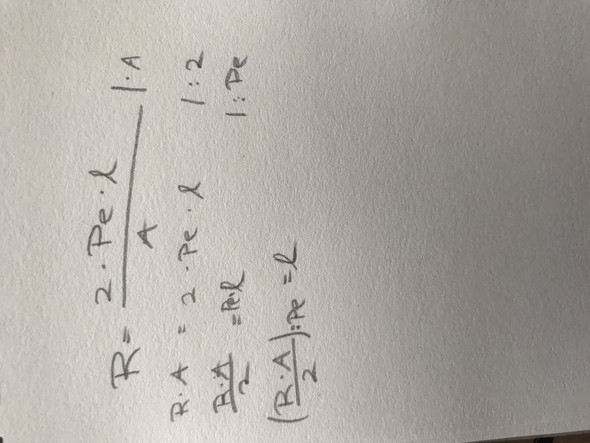 R = 2 · Pe · l / A | · A
R · A = 2 · Pe · l | : 2
R · A / 2 = Pe · l | : Pe
(R · A / 2) : Pe = l